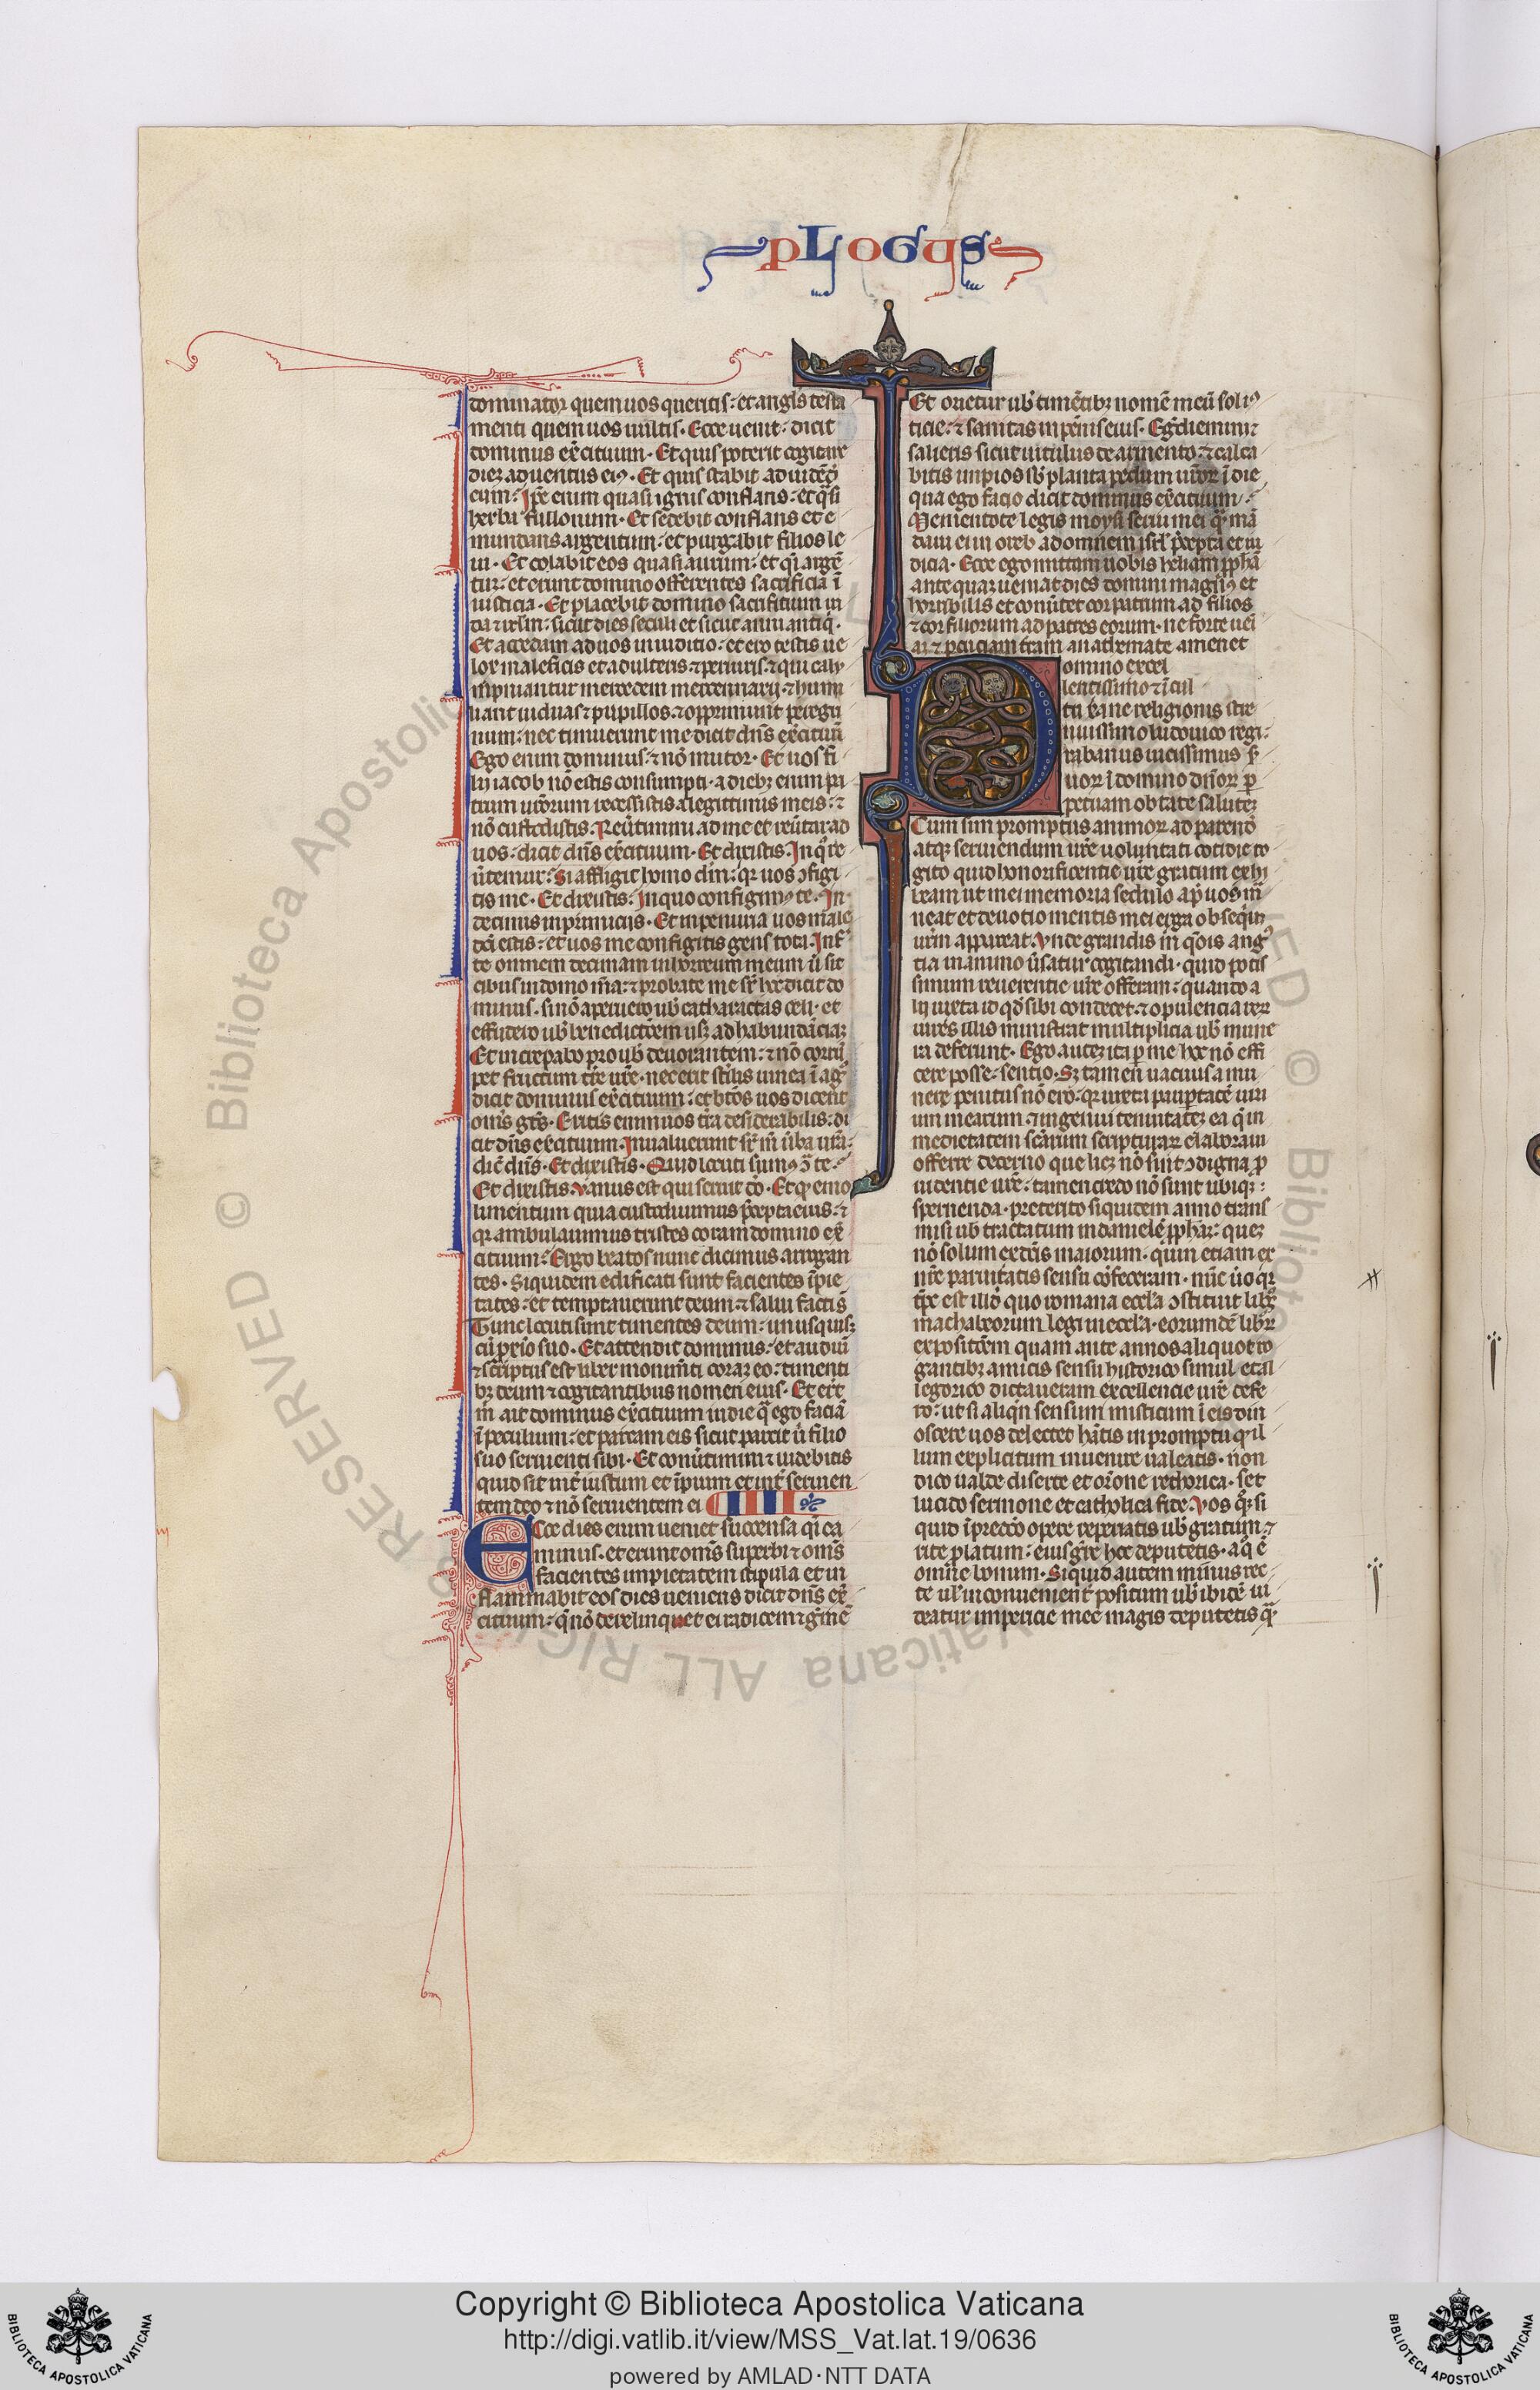 pLogus
dominator quem uos queritis : et angls̄ testa
menti quem uos uultis . Ecce uenit : dicit
dominus ex̄cituum . Et quis poterit cogitare
dieꝫ aduentus eiꝰ . Et quis stabit ad uidēdū
eum : Ip̄e enim quasi ignis conflans : et qͣsi
herba fullonum . Et sedebit conflans et e
mundans argentum : et purgabit filios le
ui . Et colabit eos quasi aurum : et qͣi argē
tū : et erunt domino offerentes sacrificia ī
iusticia . Et placebit domino sacrificium iu
da ⁊ irlm̄ : sicut dies seculi et sicut anni antiq̇ .
Et accedam ad uos in iuditio : et ero testis ue
lox maleficis et adulteris ⁊ periuris : ⁊ qui calū
mpniantur mercedem mercennarij . ⁊ humi
liant uiduas ⁊ pupillos : ⁊ opprimunt peregri
num : nec timuerunt me dicit dn̄s ex̄cituū
Ego enim dominus : ⁊ nō mutor . Et uos fi
lij iacob nō estis consumpti . a diebꝫ enim pa
trum ur̄orum recessistis a legittimis meis : ⁊
nō custodistis . Reūtimini ad me et reūtar ad
uos : dicit dn̄s ex̄cituum . Et dixistis . In qͦ re
ūtemur : Si affligit homo dm̄ : qꝛ uos ↄfigi
tis me . Et dixistis . In quo configimꝰ te . In
decimis in primicijs . Et in penuria uos māle
dc̄i estis : et uos me configitis gens tota . Inf̄
te omnem decimam in horreum meum ū sit
cibus in domo mā : ⁊ probate me sr̄ hoc dicit do
minus . si nō aperuero ub̄ catharactas celi . et
effudero ub̄ benedictōem usqꝫ ad habundāciaꝫ
Et increpabo pro ub̄ deuorantem : ⁊ nō corrū
pet fructum tr̄e ur̄e . nec erit st̄ilis uinea ī agͦ
dicit dominus ex̄cituum : et btōs uos dicent
oms̄ gtēs . Eritis enim uos tr̄a desiderabilis : di
cit dn̄s ex̄cituum . Inualuerunt sr̄ m̄ ūba ur̄a :
dic̄ dn̄s . Et dixistis . Quid locuti sumꝰ ↄ̄ te :
Et dixistis . Vanus est qui seruit do̅ . Et qͩ emo
lumentum quia custodiuimus p̄cepta eius : ⁊
qꝛ ambulauimus tristes coram domino ex̄
cituum : Ergo beatos nunc dicimus arrogan
tes . Siquidem edificati sunt facientes īpie
tates : et temptauerunt deum : ⁊ salui facti s̄
Tunc locuti sunt timentes deum : unusquisqꝫ
cū pxi̅o suo . Et attendit dominus : et audiuit
⁊ sc̄ptus est liber monumti coraꝫ eo : timenti
bꝫ deum ⁊ cogitantibus nomen eius . Et erūt
m̄ ait dominus ex̄cituum in die qͣ ego faciā
ī peculium : et parcam eis sicut parcit uir filio
suo seruienti sibi . Et conūtimini ⁊ uidebitis
quid sit int̄ iustum et īpium et int̄ seruien
tem deo ⁊ nō seruientem ei
Ecce dies enim ueniet succensa qͣi ca
minus . et erunt oms̄ superbi ⁊ oms̄
facientes impietatem stipula et in
flammabit eos dies ueniens dicit dn̄s ex̄
cituum : qͣ nō derelinquet ei radicem ⁊ g̃mē
Et orietur ub̄ timētibꝫ nomē meū sol iꝰ
ticie : ⁊ sanitas in pēnis eius . Egͬdiemini ⁊
salietis sicut uitulus de armento : ⁊ calca
bitis impios sb̄ planta pedum ur̄oꝝ ī die
qua ego facio dicit dominus ex̄cituum .
Mementote legis moysi serui mei qͣ mā
daui ei in oreb ad omnem isrl̄ p̄cepta et iu
dicia . Ecce ego mittam uobis heliam ꝓphā
antequaꝫ ueniat dies domini magnꝰ et
horribilis et conūtet cor patrum ad filios
⁊ cor filiorum ad patres eorum . ne forte ueī
aꝫ ⁊ percuciam terram anathemate amen et
Domino excel
lentissimo ⁊ ī cul
tu xp̄iane religionis stre
nuissimo ludouico regi :
rabanus uilissimus s̄
uoꝝ ī domino dn̄oꝝ ꝑ
petuam obtate saluteꝫ
Cum sim promptus animoꝝ ad parendū
atqꝫ seruiendum ur̄e uoluntati cotidie co
gito quid honorificentie ur̄e gratum exhi
beam ut mei memoria sedulo apd̄ uos m̄
neat et deuotio mentis mei erga obseqͥum
ur̄m appareat . Vnde grandis in qͣois angͥ
tia in animo ūsatur cogitandi . quid potis
simum reuerentie ur̄e offeram : quando a
lij iuxta id qd̄ sibi condecet . ⁊ opulencia reꝝ
uires illis ministrat multiplicia ub̄ mune
ra deferunt . Ego auteꝫ ita ꝑ me hoc nō effi
cere posse : sentio . Sꝫ tamen uacuus a mu
nere penitus nō ero : qꝛ iuxta paupertatē uiri
um mearum . ⁊ ingenii tenuitateꝫ ea qͥ in
medietatem sc̄arum scripturaꝝ elaboraui
offerre decerno que licꝫ nō sint ↄdigna ꝓ
uidentie ur̄e : tamen credo nō sunt ubiqꝫ :
spernenda . preterito siquidem anno trans
misi ub̄ tractatum in danielē ꝓphāꝫ : queꝫ
nō solum ex dictis maiorum . quin etiam ex
nr̄e paruitatis sensu cōfeceram . nūc ūo qꝛ
tp̄e est illo quo romana eccl̄a ↄstituit libꝝ
machabeorum legi in eccl̄a . eorumdē libꝝ
expositōem quam ante annos aliquot ro
gantibꝫ amicis sensu historico simul et al
legorico dictaueram excellencie ur̄e defe
ro : ut si aliqn̄ sensum misticum ī eis din
oscere uos delectet hātis in promptu qͩ il
lum explicitum inuenire ualeatis . non
dico ualde diserte et or̄one rethorica . set
lucido sermone et catholica fide . Vos qͦꝫ si
quid ī predc̄o opere reperiatis ub̄ gratum ⁊
rite ꝓlatum : eius grē hoc deputetis . a qͦ ē
omne bonum . Si quid autem minus rec
te ul̄ inconuenient̄ positum ub̄ ibidē ui
deatur imperitie mee magis deputetis qͣ
BIBLIOTECA APOSTOLICA VATICANA
Copyright © Biblioteca Apostolica Vaticana
http://digi.vatlib.it/view/MSS_Vat.lat.19/0636
powered by AMLAD·NTT DATA
BIBLIOTECA APOSTOLICA VATICANA